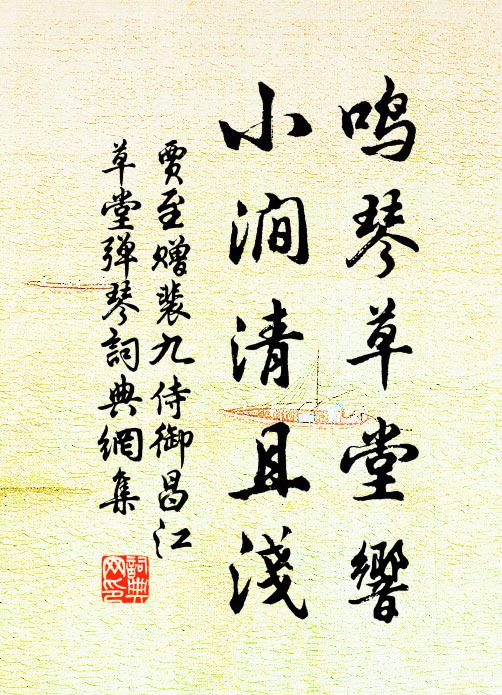 鸣琴草堂響
小澗清且淺
贾至赠裴九侍御昌江
草堂弹琴詞典網集
詞典
网印